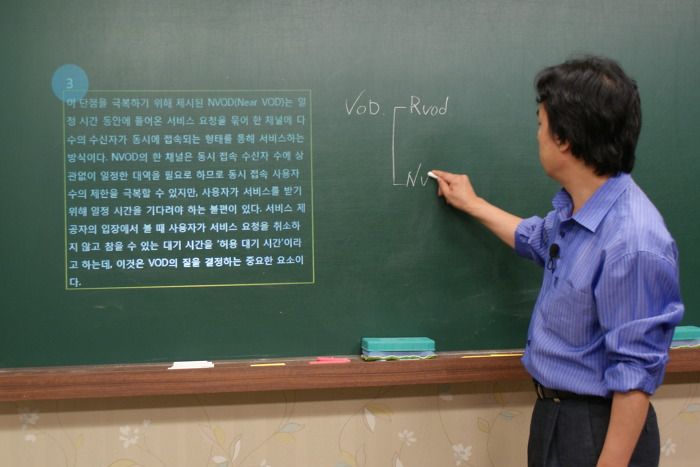 3
이 단점을 극복하기 위해 제시된 NVOD(Near VOD)는 일
정 시간 동안에 들어온 서비스 요청을 묶어 한 채널에 다
수의 수신자가 동시에 접속되는 형태를 통해 서비스하는
방식이다. NVOD의 한 채널은 동시 접속 수신자 수에 상
관없이 일정한 대역을 필요로 하므로 동시 접속 사용자
수의 제한을 극복할 수 있지만, 사용자가 서비스를 받기
위해 일정 시간을 기다려야 하는 불편이 있다. 서비스 제
공자의 입장에서 볼 때 사용자가 서비스 요청을 취소하
지 않고 참을 수 있는 대기 시간을 '허용 대기 시간'이라
고 하는데, 이것은 VOD의 질을 결정하는 중요한 요소이
다.
VOD. Rvod
Nv